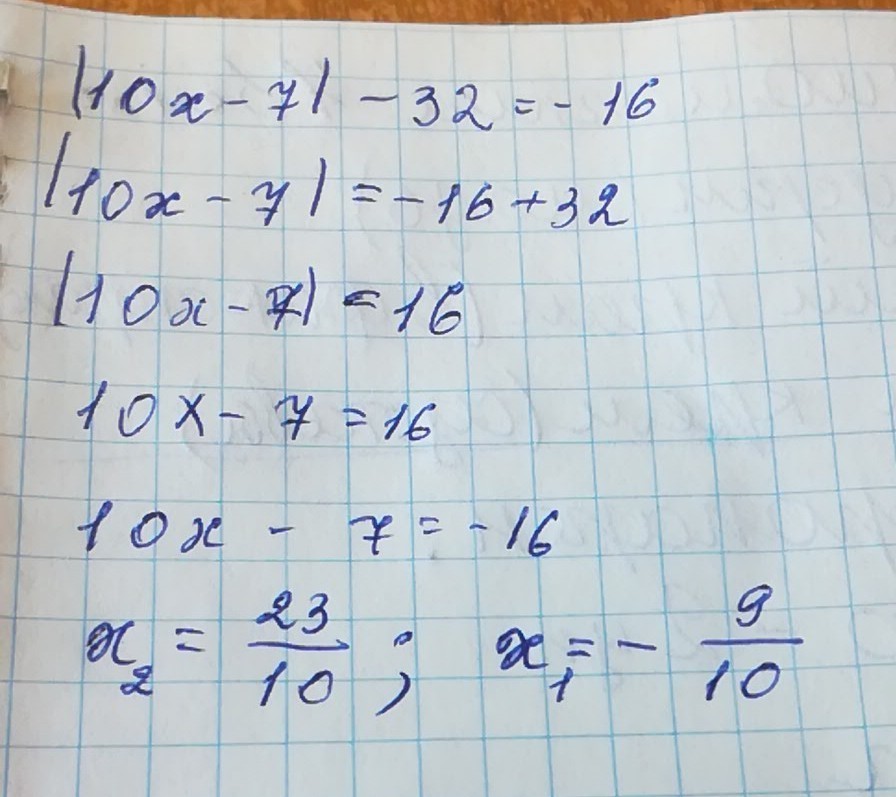 |10x - 7| - 32 = - 16
|10x - 7| = - 16 + 32
|10x - 7| = 16
10x - 7 = 16
10x - 7 = - 16
x₂ = 23/10 ; x₁ = - 9/10